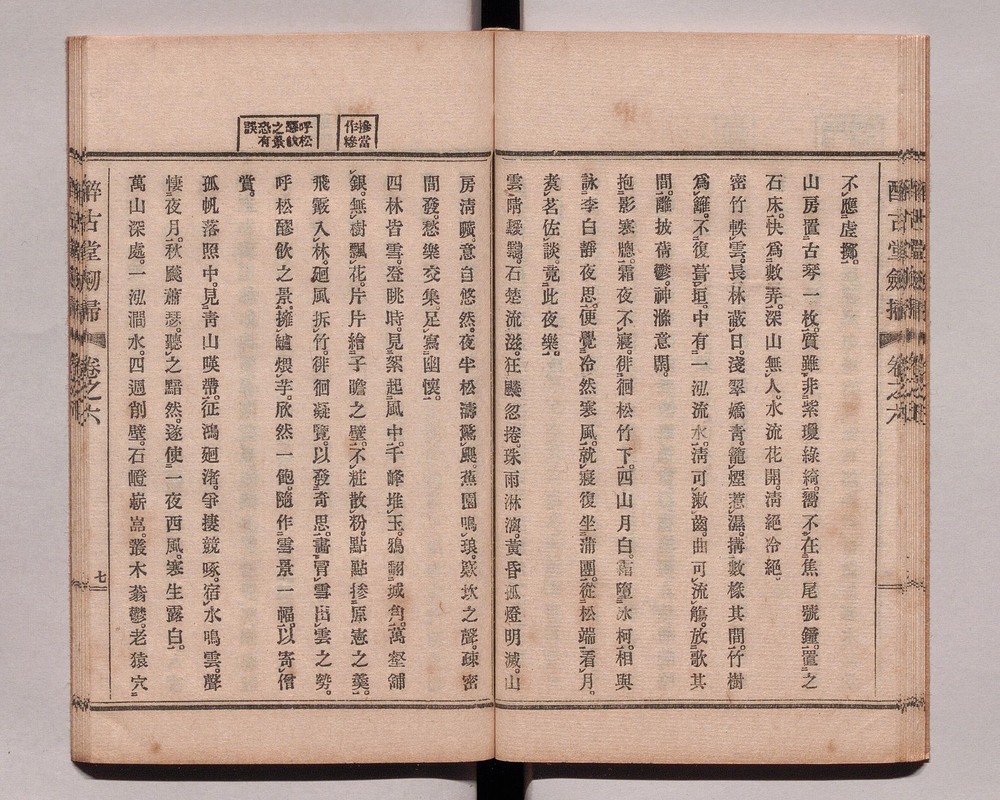 不應虛擲。
山房置古琴一枚。質雖非紫瓊綠綺。響不在焦尾號鐘。置之
石床。快爲數弄。深山無人。水流花開。淸絕冷絕。
密竹軼雲。長林蔽日。淺翠嬌靑。籠煙惹濕。搆數椽其間。竹樹
爲籬。不復葺垣。中有一泓流水。淸可漱齒。曲可流觴。放歌其
間。離披蒨鬱。神滌意閒。
抱影寒聰。霜夜不寢。徘徊松竹下。四山月白。露墮冰柯。相與
詠李白靜夜思。便覺冷然寒風。就寢復坐蒲團。從松端看月。
煑茗佐談。竟此夜樂。
雲晴靉靆。石楚流滋。狂飇忽捲。珠雨淋漓。黃昏孤燈明滅。山
房淸曠。意自悠然。夜半松濤驚颶。蕉園鳴琅。窾坎之聲。疎密
間發。愁樂交集。足寫幽懷。
四林皆雪。登眺時。見絮起風中。千峰堆玉。鴉翻城角。萬壑舖
銀。無樹飄花。片片繪子瞻之壁。不粧散粉。點點摻原憲之羹。
飛霰入林。廻風折竹。徘徊凝覽。以發奇思。畵冐雪出雲之勢。
呼松醪飮之景。擁爐煨芋。欣然一飽。隨作雪景一幅。以寄僧
賞。
孤帆落照中。見靑山暎帶。征鴻廻渚。爭捿競啄。宿水鳴雲。聲
悽夜月。秋飇蕭瑟。聽之黯然。遂使一夜西風。寒生露白。
萬山深處。一泓澗水。四週削壁。石磴嶄嵓。叢木蓊鬱。老猿穴
摻當
作糝
呼松
醪飮
之景
恐有
誤
醉古堂劒掃
卷之六
七
醉古堂劒掃
卷之六